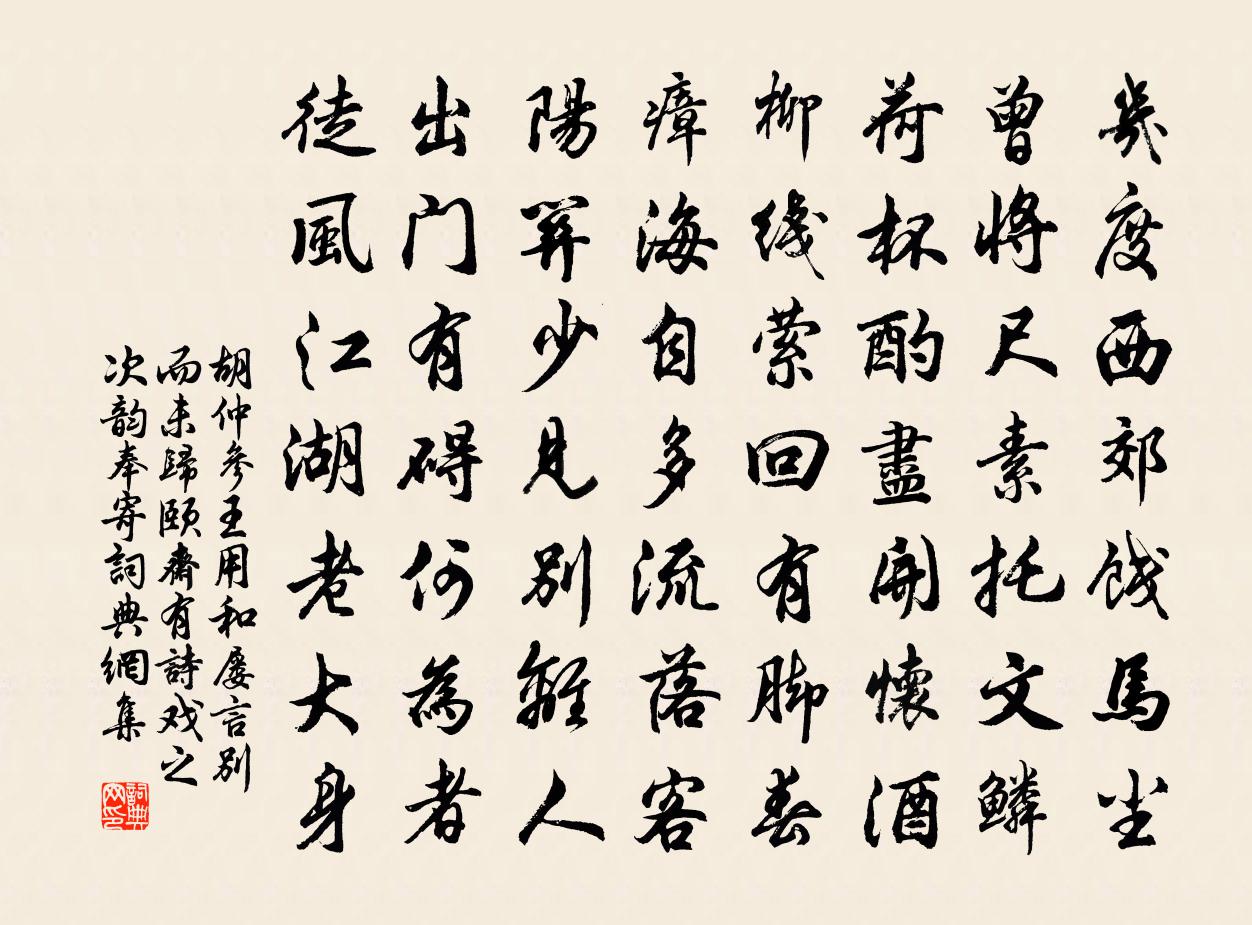 幾度西郊餞馬尘
曾將尺素托文鱗
荷杯酌盡開懷酒
柳綫萦回有脚春
瘴海自多流落客
陽關少見別離人
出门有碍何為者
徒風江湖老大身
胡仲參王用和屡言別
而未歸頤齋有詩戏之
次韵奉寄詞典網集
詞典网印